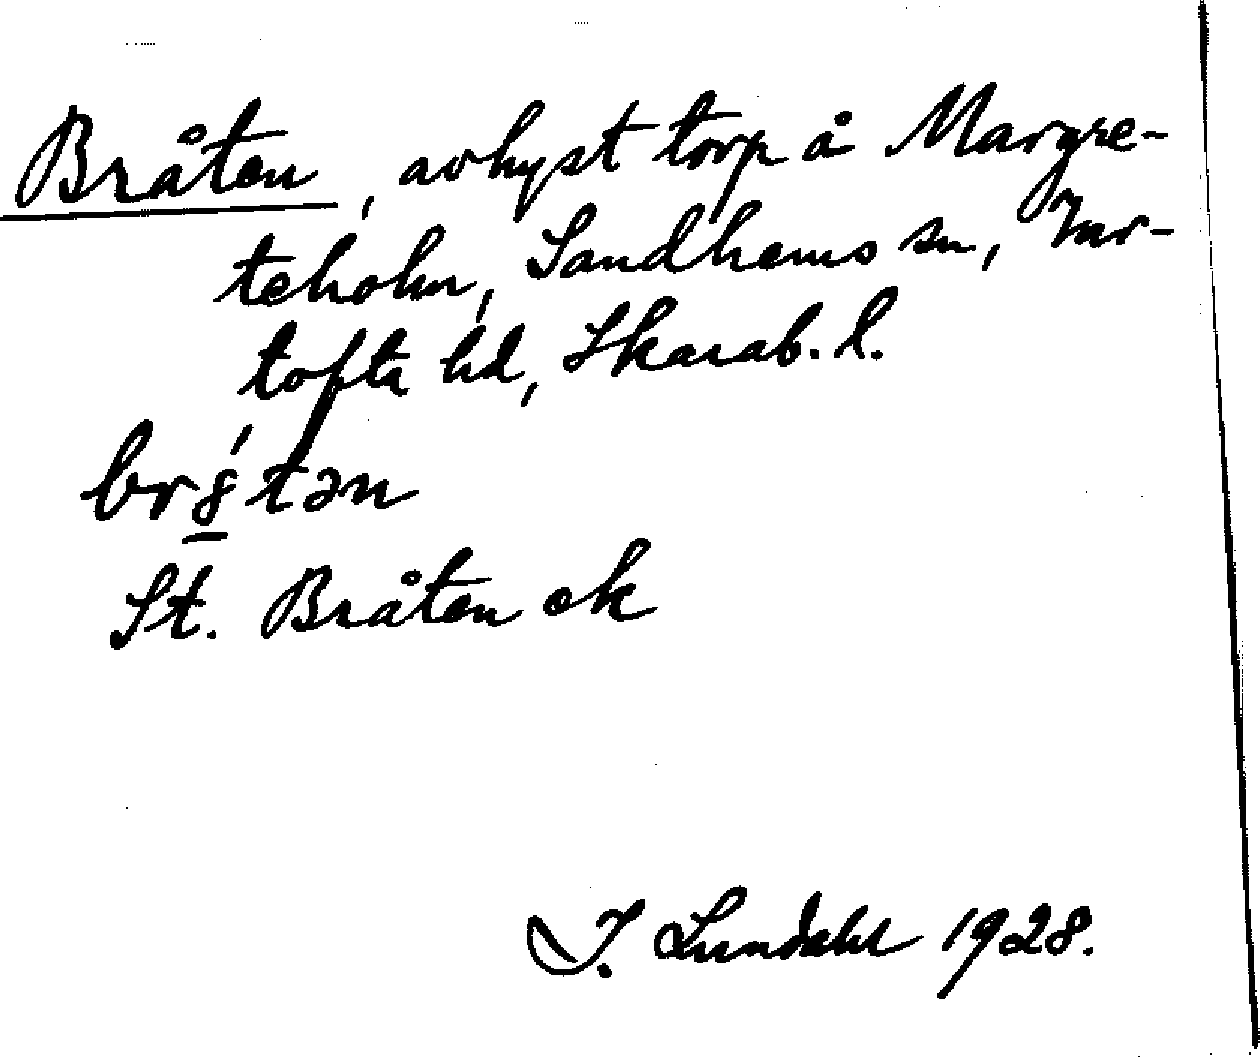 Bråten, avhyst torp å Margre-
teholm, Sandhems sn, Var-
tofta hd, Skarab. l.
br8́tən
St. Bråten ek
I. Lundahl 1928.